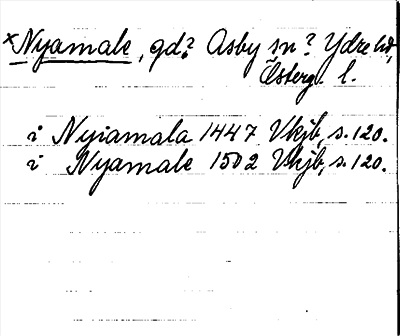 × Nyamale, gd.? Asby sn? Ydre hd,
Österg. l.
i Nyiamala 1447 Vkjb, s. 120.
i Nyamale 1502 Vkjb, s. 120.